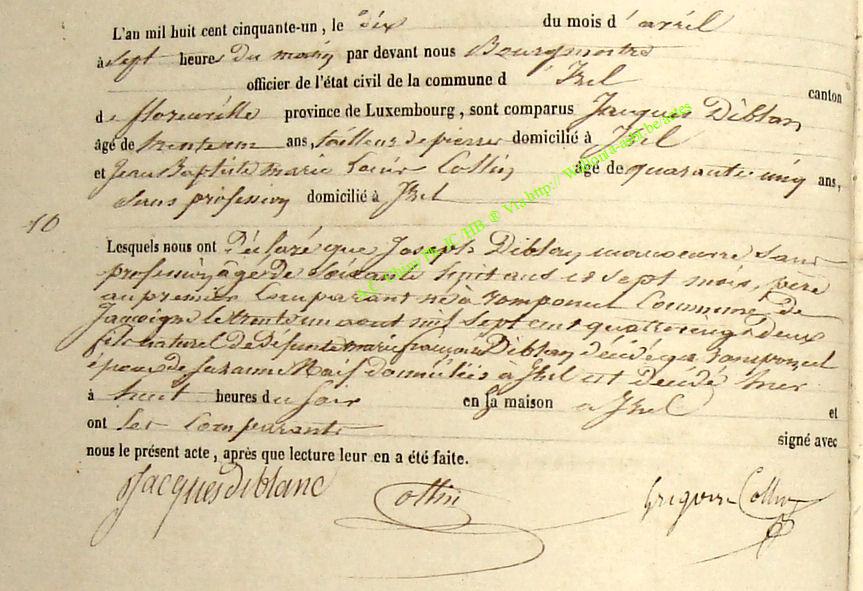 L'an mil huit cent cinquante-un, le dix du mois d'avril
à sept heures du matin par devant nous Bourgmestre
officier de l'état civil de la commune d'Izel canton
de florenville province de Luxembourg, sont comparus Jacques Diblan
âgé de trente ans, tailleur de pierres domicilié à Izel
et Jean Baptiste marie Collin âgé de quarante cinq ans,
sans profession domicilié à Izel
10
Lesquels nous ont Déclaré que Joseph Diblan, manoeuvre sans
profession, âgé de soixante huit ans et sept mois, père
au premier Comparant né à romponcel Commune de
Jamoigne le trente un aout mil sept cent quatre vingt deux
fils naturel de défunte marie françoise Diblan décédée à romponcel
époux de Suzanne domiciliés à Izel est Décédé hier
à huit heures du soir en sa maison a Izel et
ont les Comparants signé avec
nous le présent acte, après que lecture leur en a été faite.
Jacques diblanc Collin Grégoire Collin